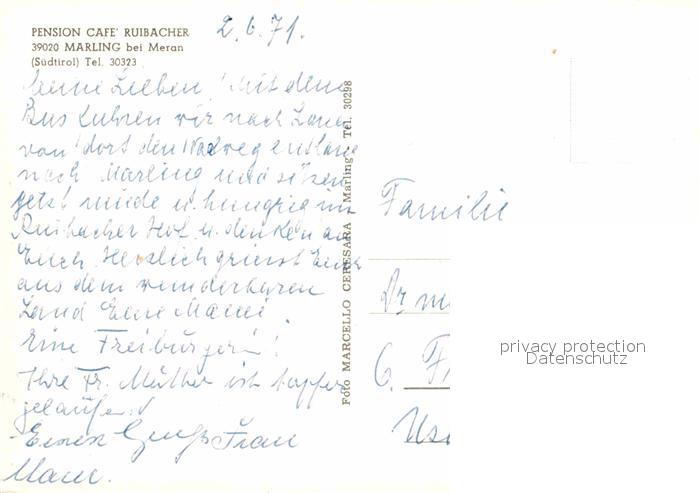 PENSION CAFE' RUIBACHER
39020 MARLING bei Meran
(Südtirol) Tel. 30323
2.6.71.
Meine Lieben! Mit dem
Bus fuhren wir nach Lana
von dort den Waalweg entlang
nach Marling und sitzen
jetzt müde u. hungrig im
Ruibacher Hof u. denken an
Euch. Herzlich grüsst Euch
aus dem wunderbaren
Land Eure Mami.
Eine Freiburgerin!
Ihre Fr. Mutter ist tapfer
gelaufen!
Einen Gruß Frau
Foto MARCELLO CERESARA Marling Tel. 30298
Familie
Dr. m
6. F
Us
privacy protection
Datenschutz